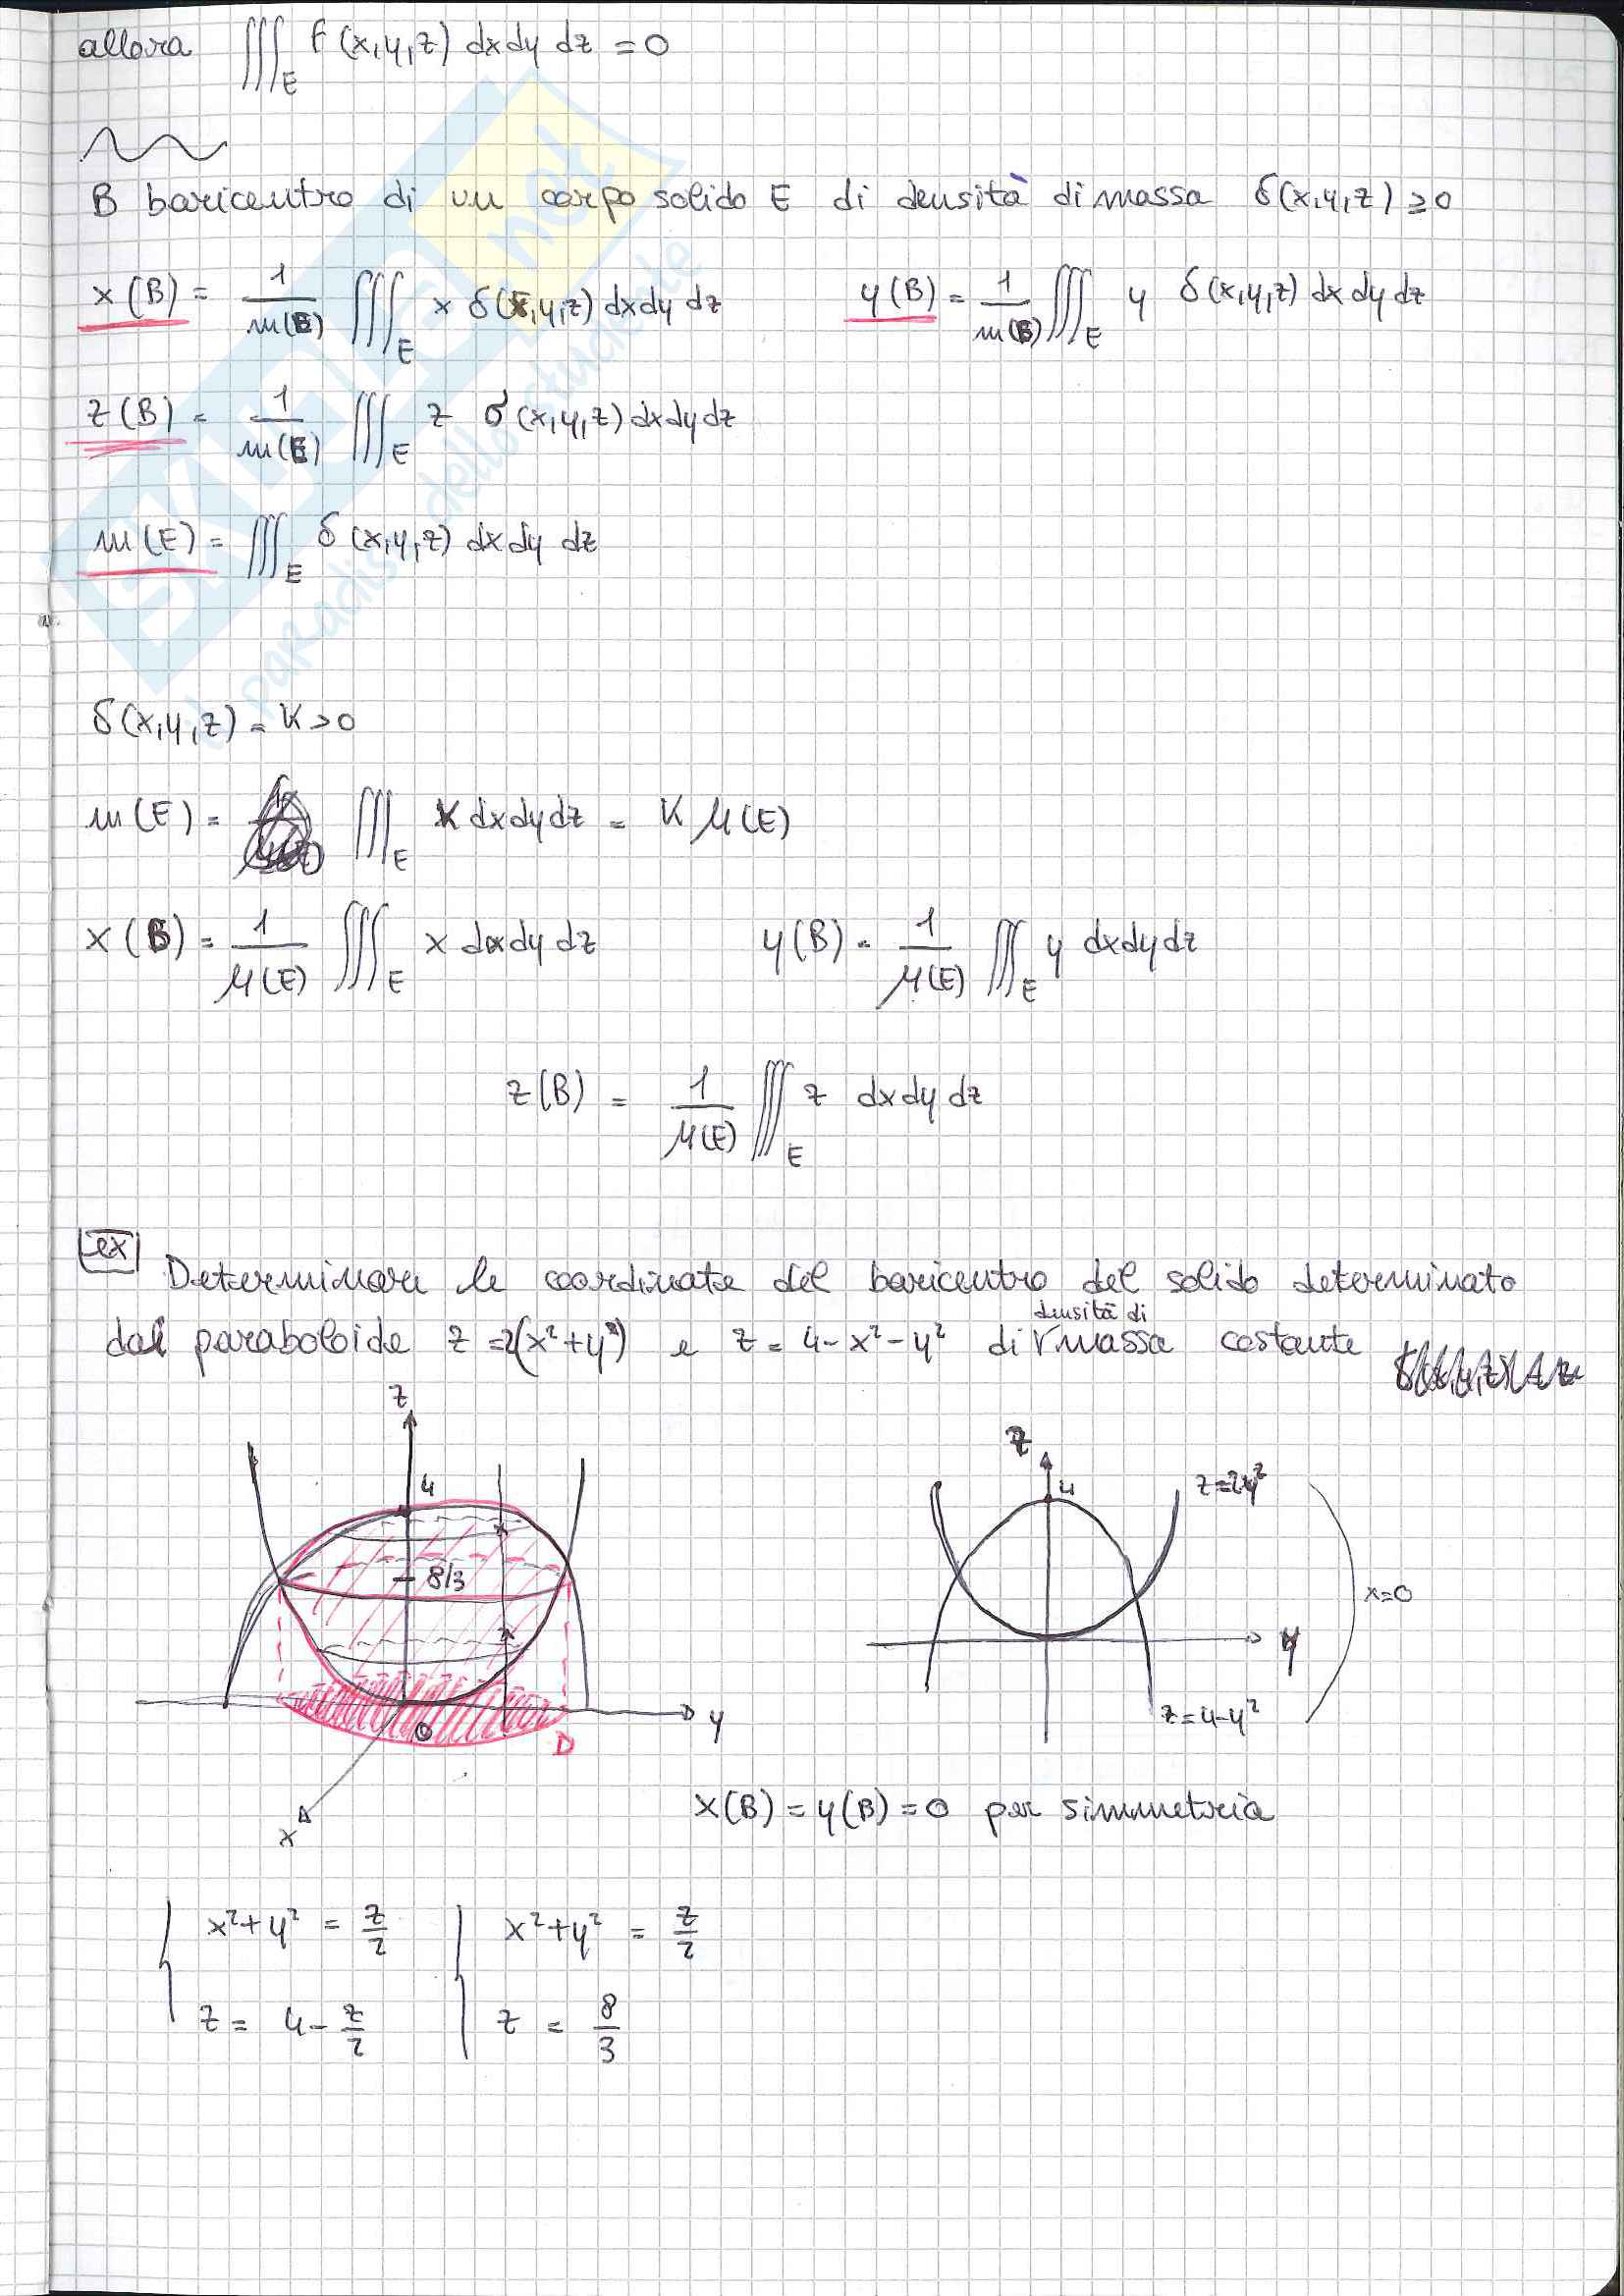 allora ∭_E f(x,y,z) dxdy dz = 0
B baricentro di un corpo solido E di densità di massa δ(x,y,z) ≥ 0
x(B) = 1/m(E) ∭_E x δ(x,y,z) dxdy dz    y(B) = 1/m(B) ∭_E y δ(x,y,z) dx dy dz
z(B) = 1/m(E) ∭_E z δ(x,y,z) dxdydz
m(E) = ∭_E δ(x,y,z) dxdy dz
δ(x,y,z) = K > 0
m(E) = ∭_E K dxdydz = K μ(E)
x(B) = 1/μ(E) ∭_E x dxdy dz    y(B) = 1/μ(E) ∭_E y dxdydz
z(B) = 1/μ(E) ∭_E z dxdy dz
ex
Determinare le coordinate del baricentro del solido determinato
densità di
dai paraboloide z = 2(x²+y²) e z = 4-x²-y² di massa costante
z
4
8/3
O
D
y
x
z
4
z=2y²
x=0
y
z=4-y²
x(B) = y(B) = 0 per simmetria
{ x²+y² = z/2    { x²+y² = z/2
z = 4 - z/2    z = 8/3
SKUOLA.net
il paradiso dello studente